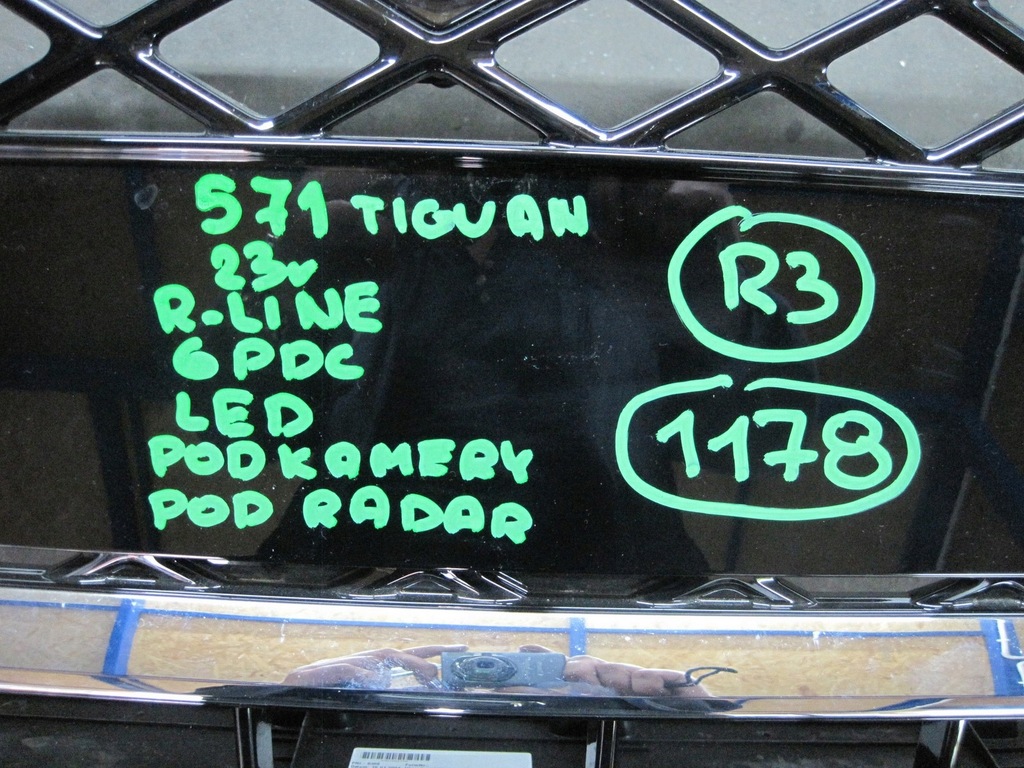 571 TIGUAN
23r
R-LINE
6 PDC
LED
POD KAMERY
POD RADAR
R3
1178